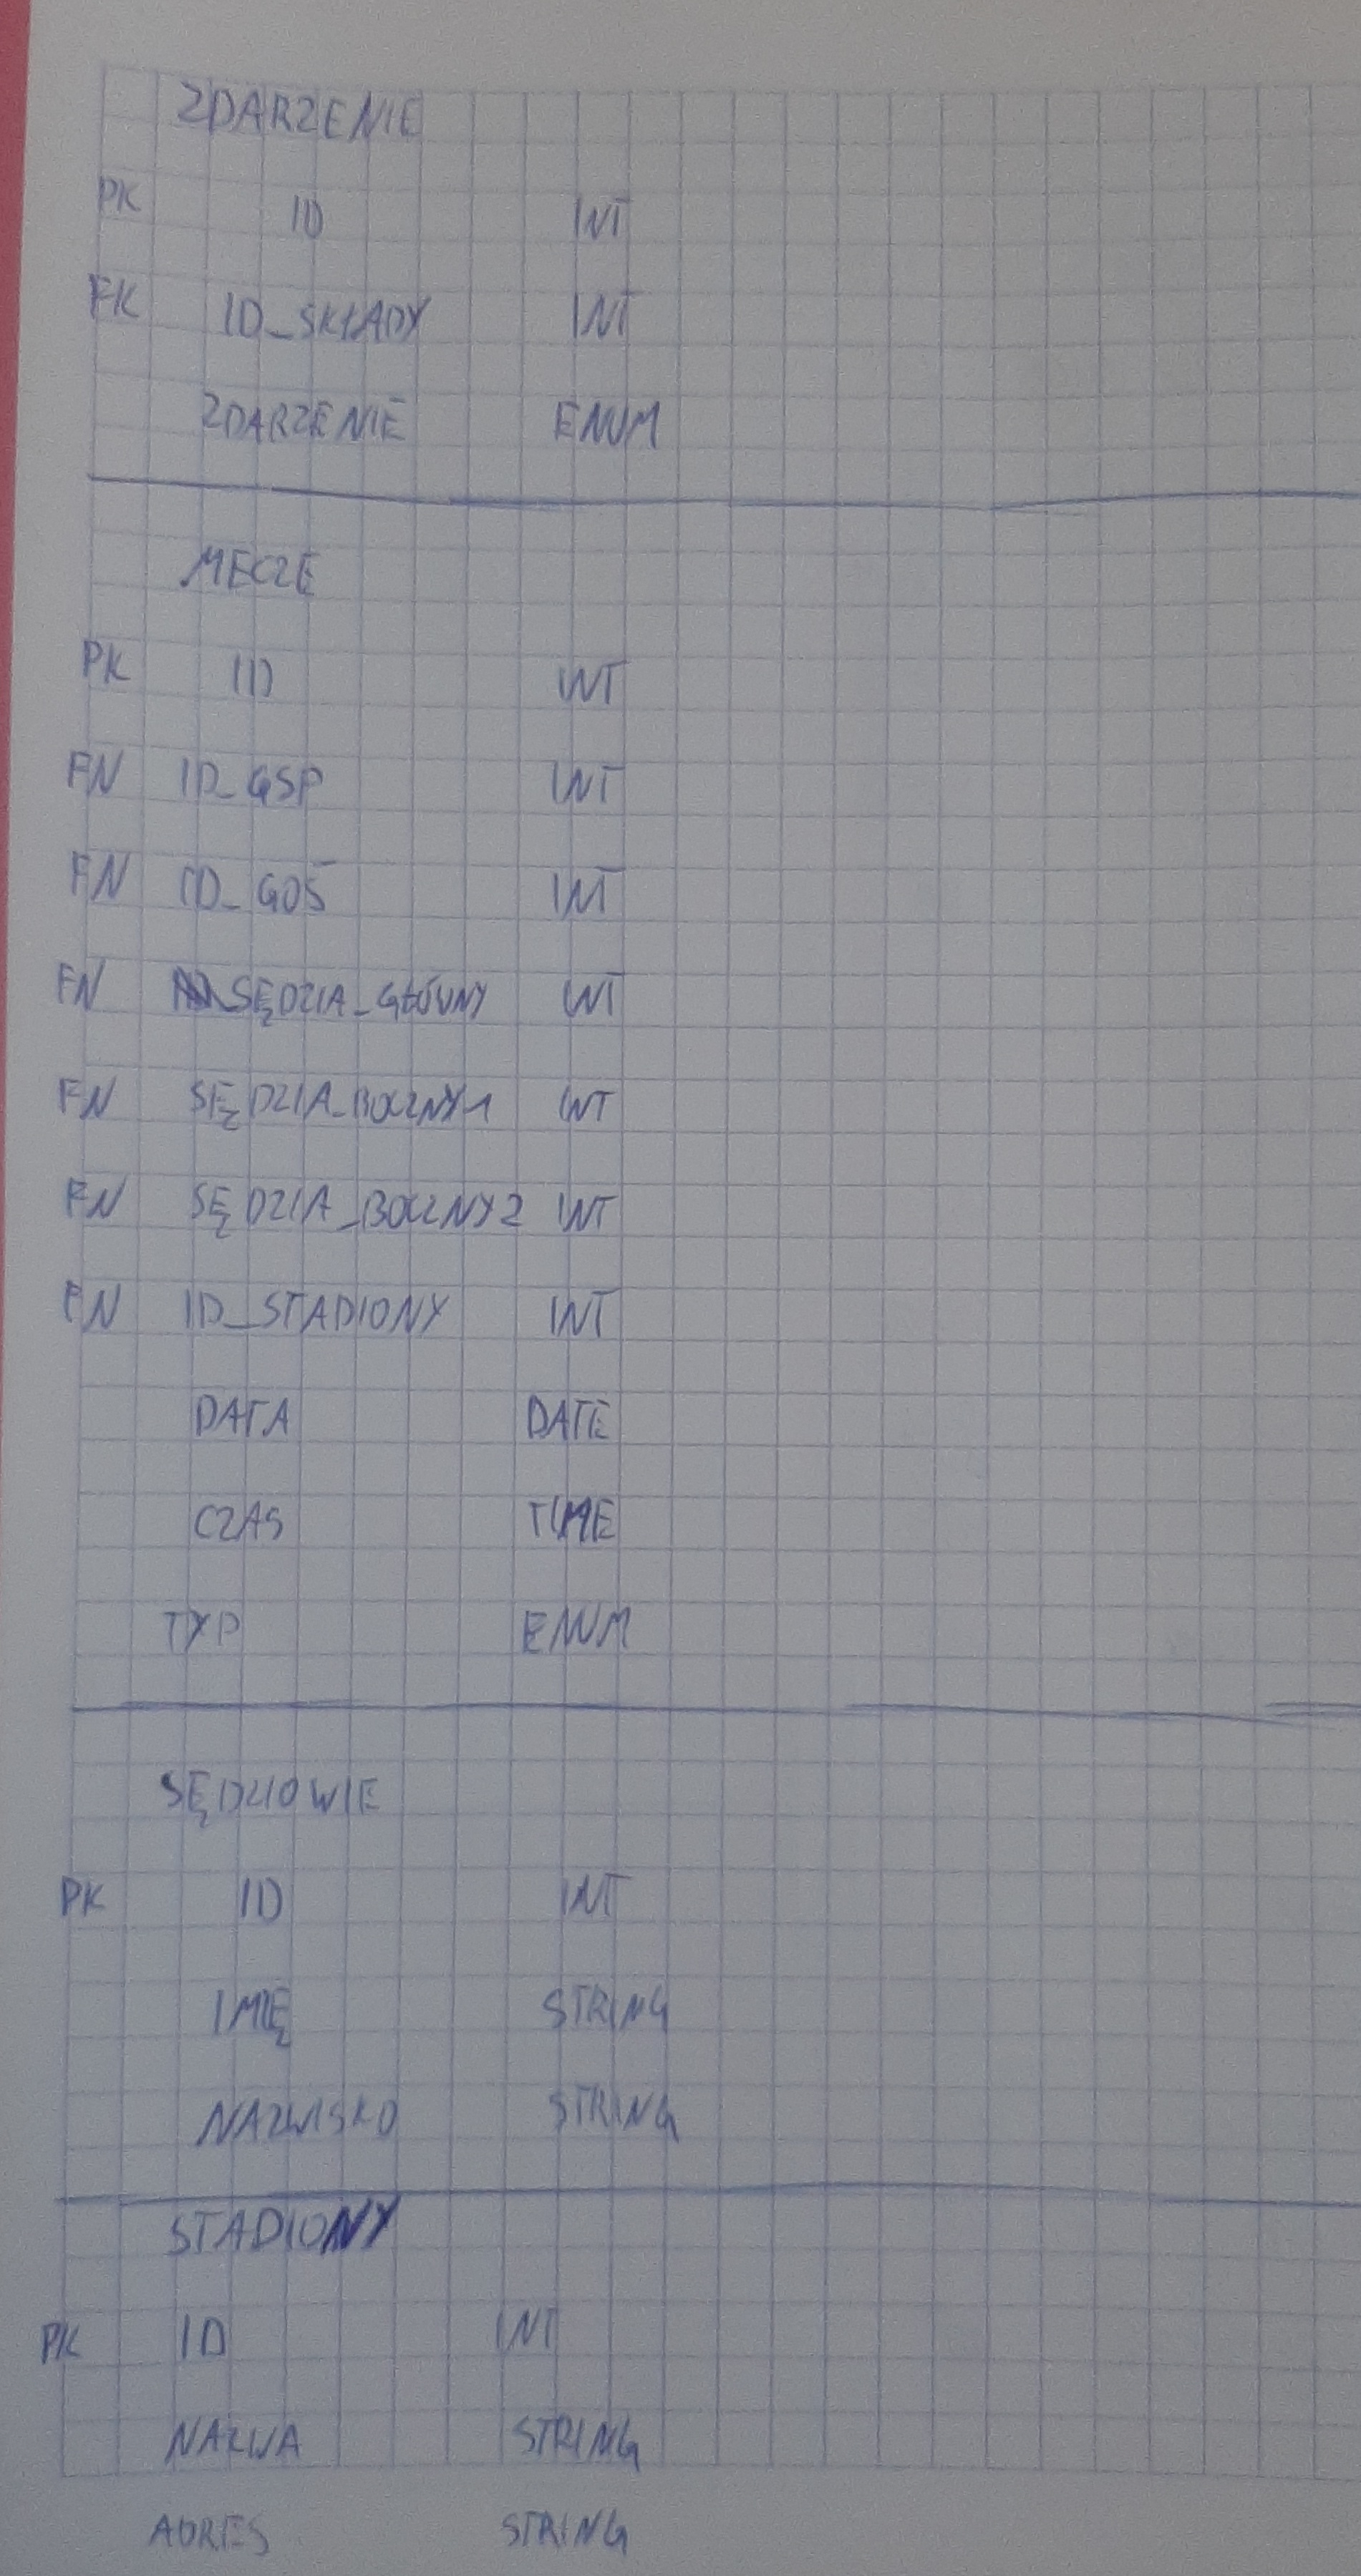 ZDARZENIE
PK ID INT
FK ID_SKŁADY INT
ZDARZENIE ENUM
MECZE
PK ID INT
FN ID_GSP INT
FN ID_GOŚ INT
FN SĘDZIA_GŁÓWNY INT
FN SĘDZIA_BOCZNY1 INT
FN SĘDZIA_BOCZNY2 INT
FN ID_STADIONY INT
DATA DATE
CZAS TIME
TYP ENUM
SĘDZIOWIE
PK ID INT
IMIĘ STRING
NAZWISKO STRING
STADIONY
PK ID INT
NAZWA STRING
ADRES STRING